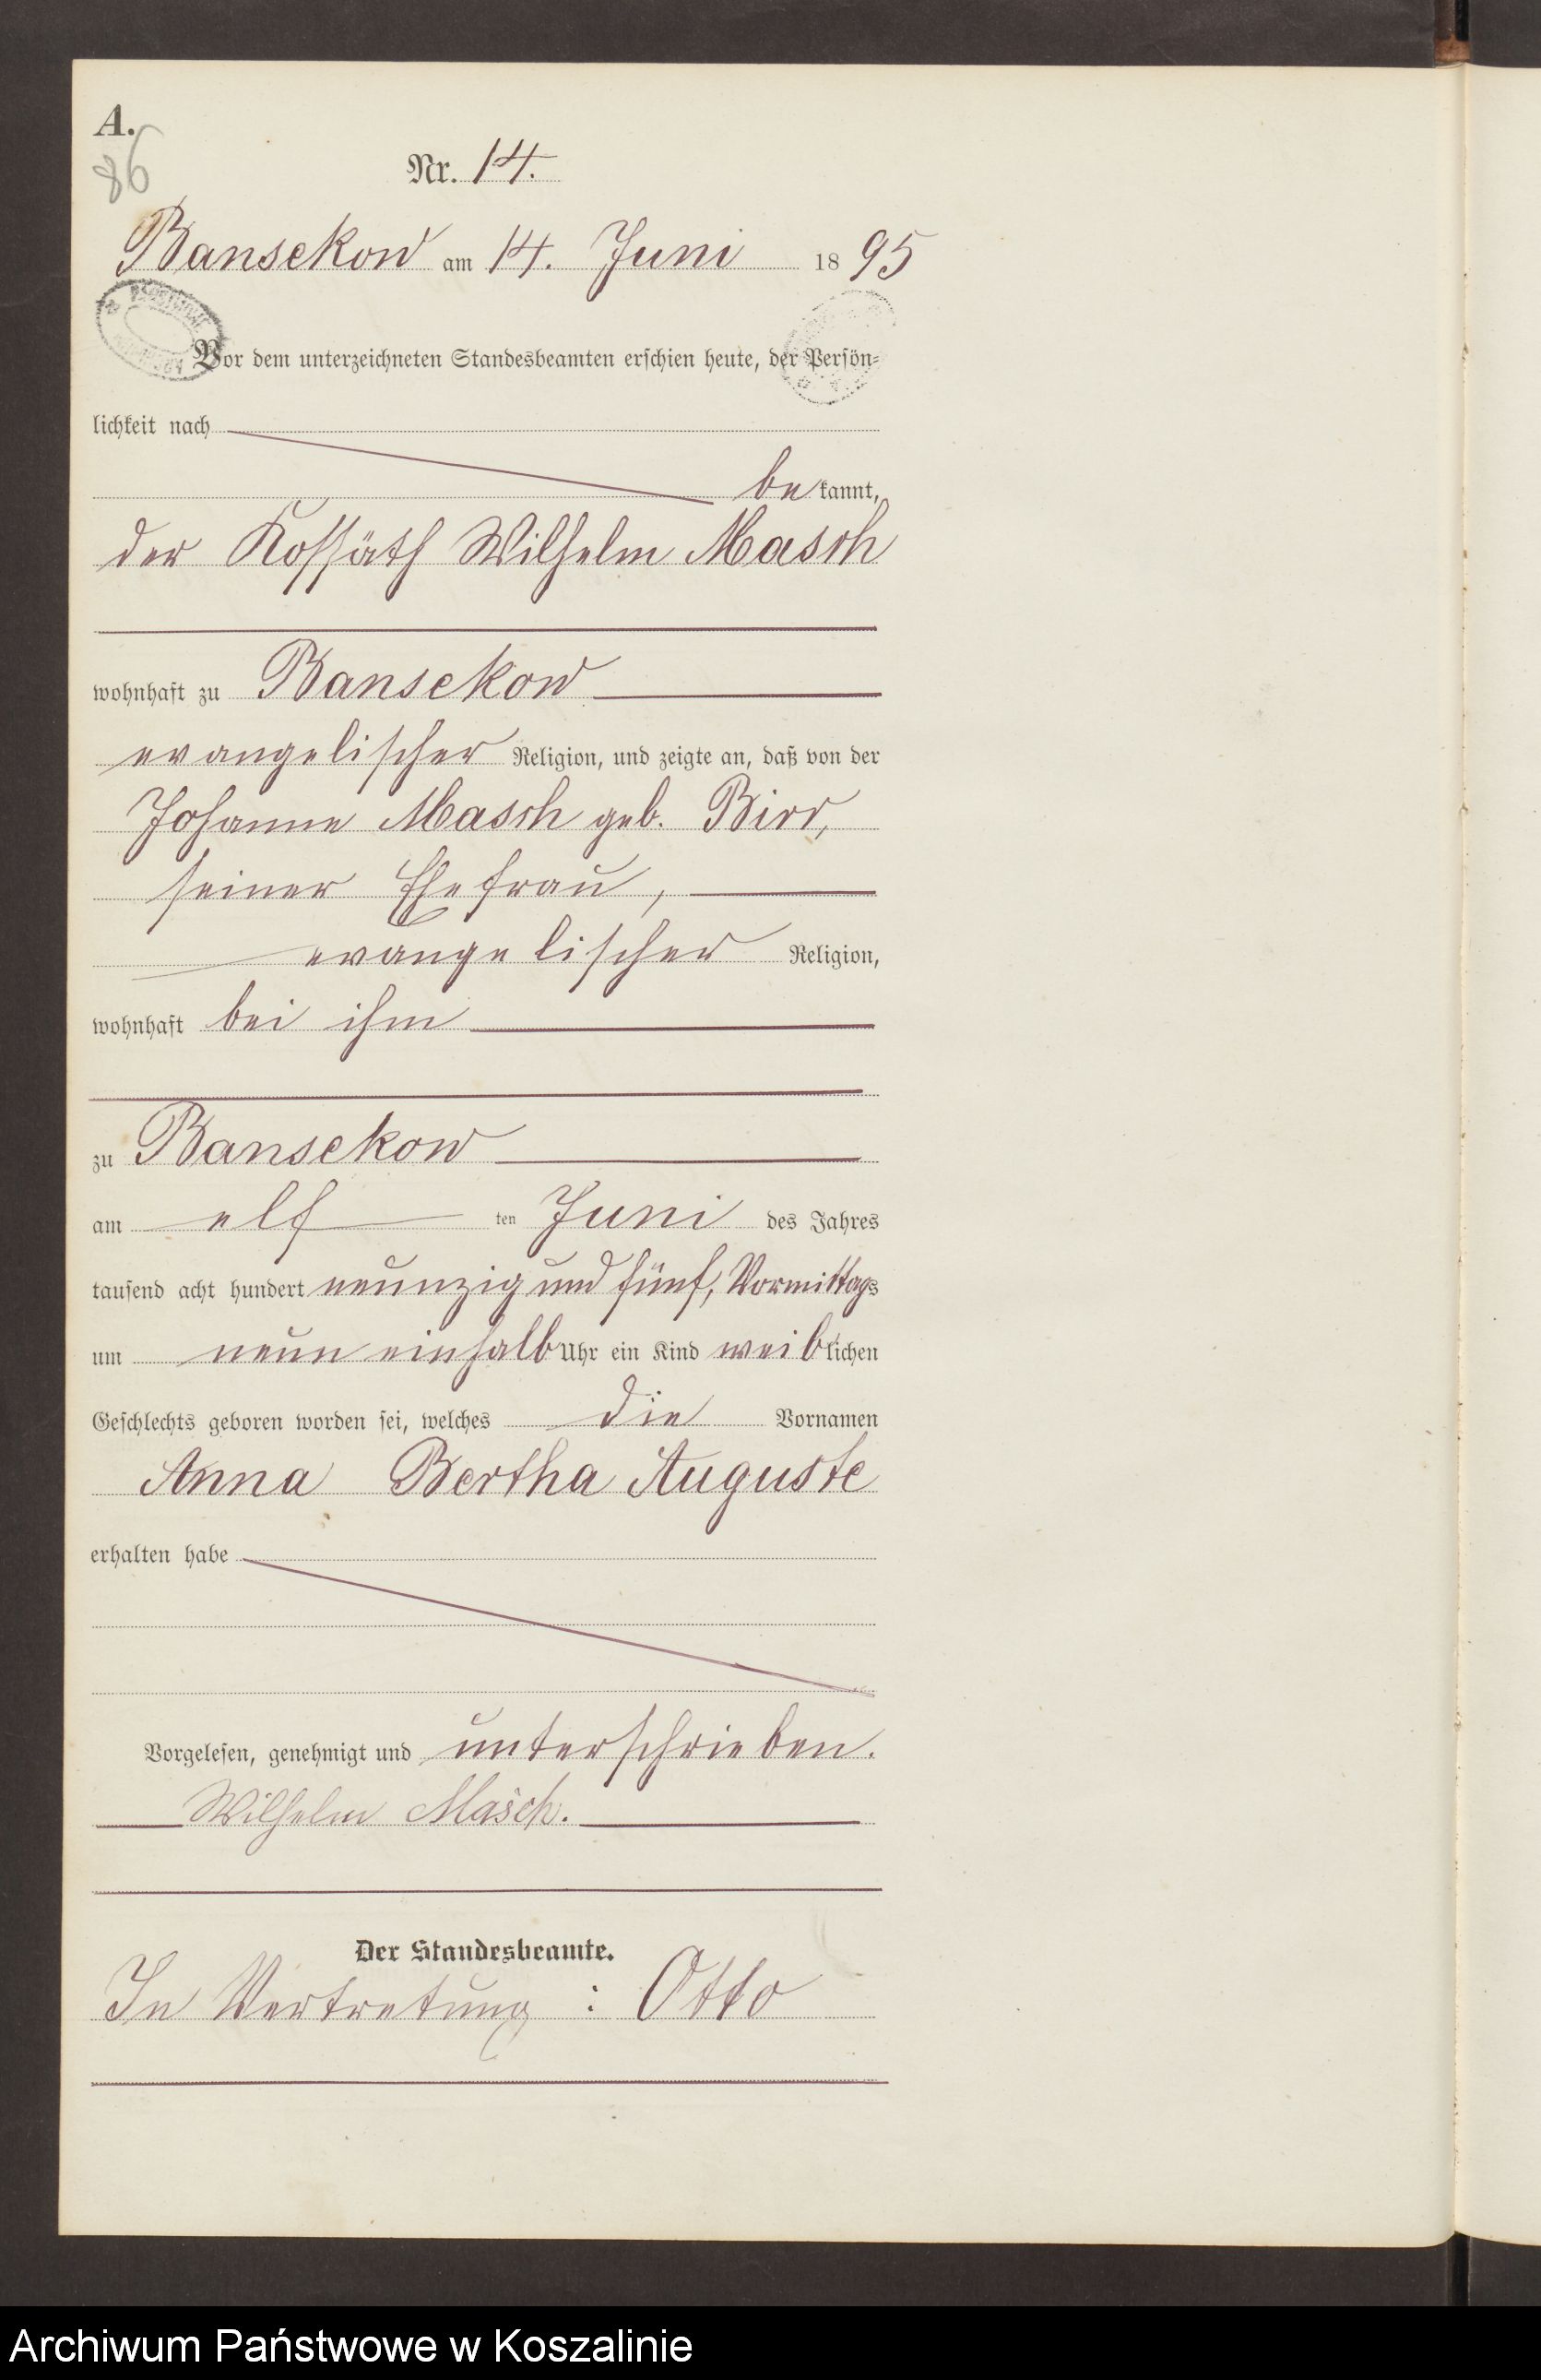 A.
86
Nr. 14.
Bansekow am 14. Juni 1895
Vor dem unterzeichneten Standesbeamten erschien heute, der Persön-
lichkeit nach
be kannt,
der Kossäth Wilhelm Masch
wohnhaft zu Bansekow
evangelischer Religion, und zeigte an, daß von der
Johanne Masch geb. Birr,
seiner Ehefrau,
evangelischer Religion,
wohnhaft bei ihm
zu Bansekow
am elf ten Juni des Jahres
tausend acht hundert neunzig und fünf, Vormittags
um neun einhalb Uhr ein Kind weiblichen
Geschlechts geboren worden sei, welches die Vornamen
Anna Bertha Auguste
erhalten habe
Vorgelesen, genehmigt und unterschrieben.
Wilhelm Masch.
Der Standesbeamte.
In Vertretung: Otto
Archiwum Państwowe w Koszalinie